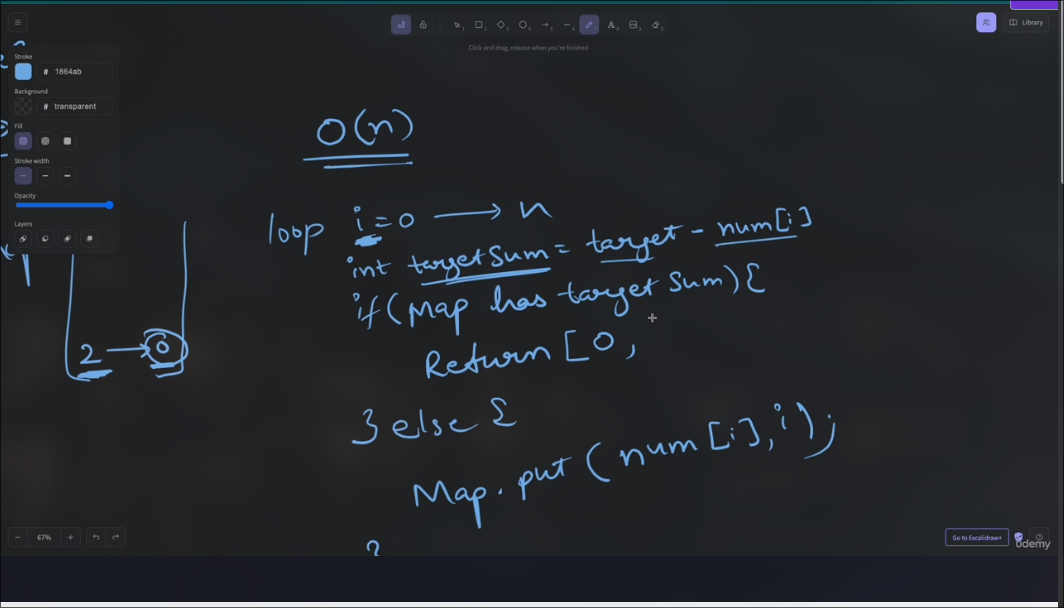 Library
Click and drag, release when you're finished
Stroke
# 1864ab
Background
# transparent
Fill
Stroke width
Opacity
Layers
O(n)
loop i = 0 → n
int targetSum = target - num[i]
if (Map has target Sum) {
Return [0,
} else {
Map.put (num[i], i);
2 → 0
67%
Go to Excalidraw+
udemy